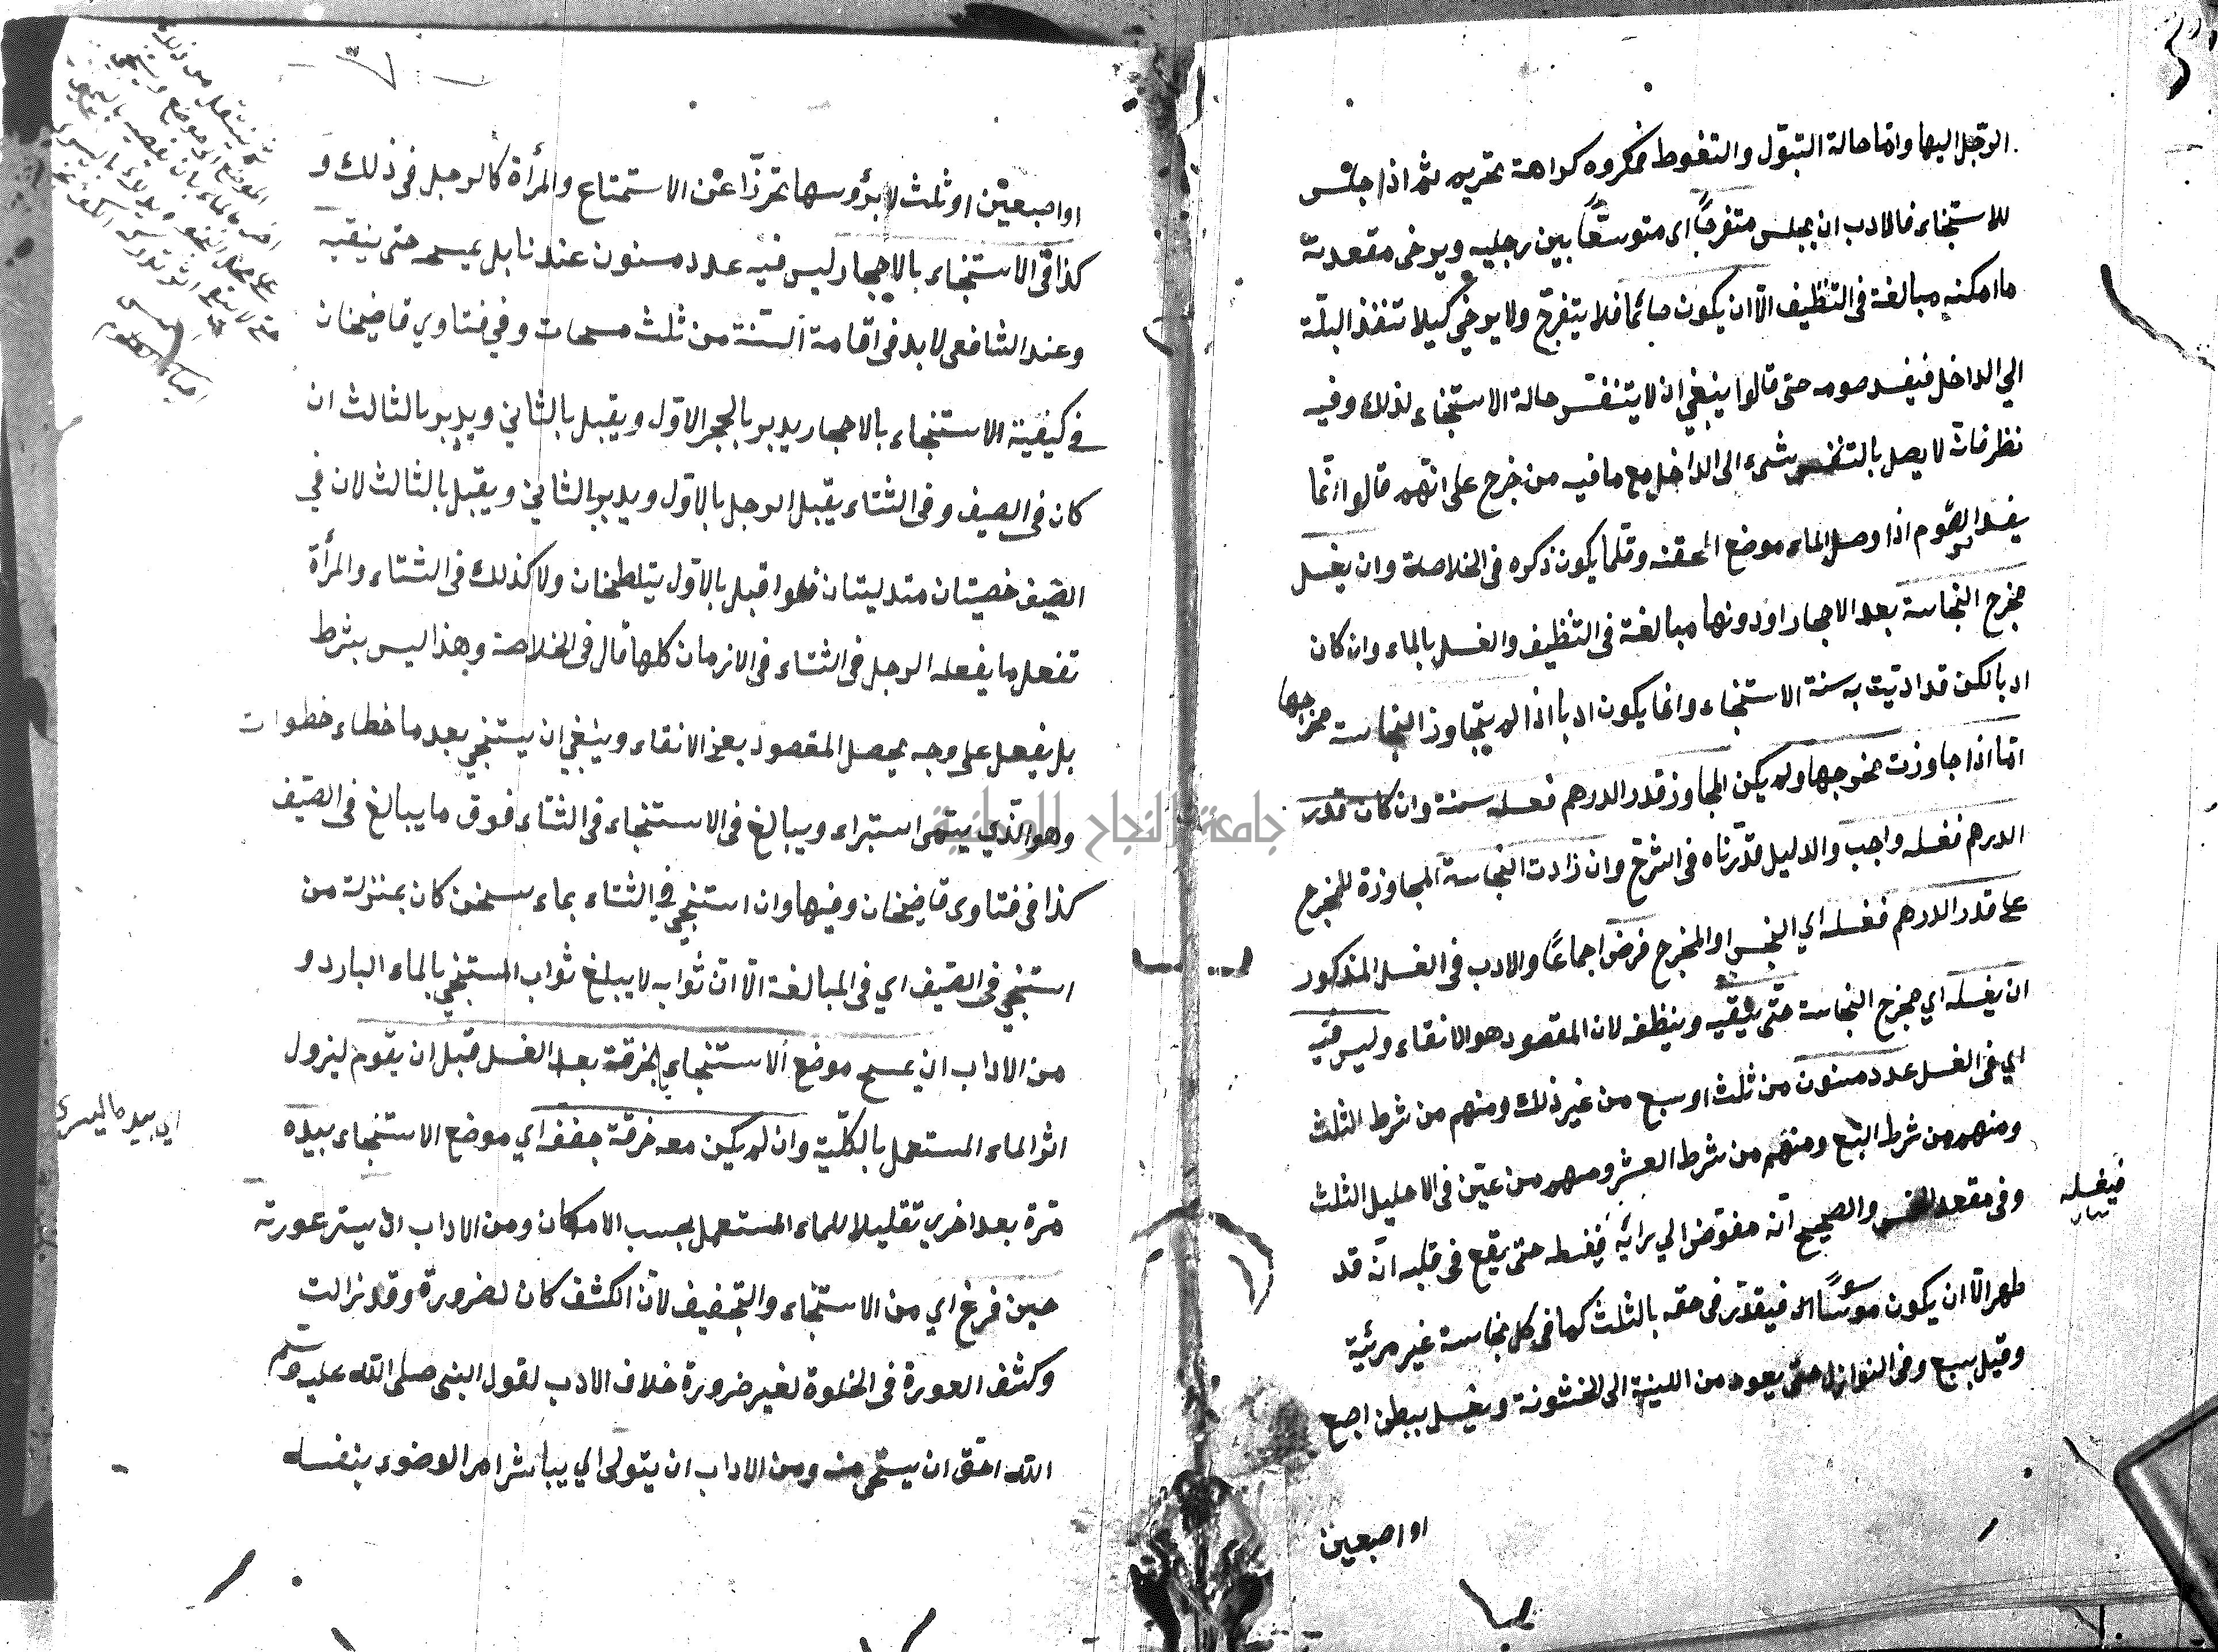 الرجل اليها واما حالة التبول والتغوط فمكروه كراهة تحريم ثم اذا جلس
للاستنجاء فالادب ان يجلس متفرجاً اى متوسعاً بين رجليه ويرخى مقعدته
ما امكنه مبالغة فى التنظيف الّا ان يكون صائما فلا يتفرج ولا يرخي كيلا تنفذ البلّة
الي الداخل فيفسد صومه حتى قالوا ينبغي ان لا يتنفس حالة الاستنجاء لذلك وفيه
نظر فانّه لا يصل بالتنفس شىء الى الداخل مع ما فيه من حرج على انهم قالوا انّما
يفسد الصوم اذا وصل الماء موضع الحقنه وقلما يكون ذكره فى الخلاصة وان يغسل
مخرج النجاسة بعد الاحجار او دونها مبالغة فى التنظيف والغسل بالماء وان كان
ادبا لكن قد اديت به سنة الاستنجاء وانما يكون ادبا اذا لم يتجاوز النجاسة مخرجها
امّا اذا جاوزت مخرجها ولم يكن المجاوز قدر الدرهم فغسله سنة وان كان قدر
الدرهم فغسله واجب والدليل قدّرناه فى الشرح وان زادت النجاسة المجاوزة للمخرج
على قدر الدرهم فغسله اي النجس او المخرج فرض اجماعًا والادب فى الغسل المذكور
ان يغسله اي مخرج النجاسة حتّى ينقيه وينظفه لان المقصود هو الانقاء وليس فيه
اي فى الغسل عدد مسنون من ثلث او سبع من غير ذلك ومنهم من شرط الثلث
ومنهم من شرط السبع ومنهم من شرط العشر ومنهم من عيّن فى الاحليل الثلث
وفى مقعد الخمس والصحيح انّه مفوّض الي رأيه فيغسله حتى يقع فى قلبه انّه قد
طهر الّا ان يكون موسوسًا فيقدّر فى حقه بالثلث كما فى كل نجاسة غير مرئية
وقيل بسبع وفى النوازل حتى يعود من اللينة الى الخشونة ويغسل ببطن اصبع
او اصبعين
فيغسله
او اصبعين او ثلث لا برؤوسها تحرزّا عن الاستمتاع والمرأة كالرجل فى ذلك و
كذا فى الاستنجاء بالاحجار ليس فيه عدد مسنون عندنا بل يمسحه حتى ينقيه
وعند الشافعى لا بد فى اقامة السنة من ثلث مسحات وفي فتاوي قاضيخان
فى كيفية الاستنجاء بالاحجار يدبر بالحجر الاوّل ويقبل بالثاني ويدبر بالثالث ان
كان فى الصيف وفى الشتاء يقبل الرجل بالاوّل ويدبر بالثاني ويقبل بالثالث لان في
الصّيف خصيتان متدليتان فلو اقبل بالاوّل يتلطخان ولا كذلك فى الشتاء والمرأة
تفعل ما يفعله الرجل فى الشتاء فى الازمان كلها قال فى الخلاصة وهذا ليس بشرط
بل يفعل على وجه يحصل المقصود يعنى الانقاء وينبغي ان يستنجي بعد ما خطاء خطوات
وهو الّذي يسمى استبراء ويبالغ فى الاستنجاء فى الشتاء فوق ما يبالغ فى الصّيف
كذا فى فتاوى قاضيخان وفيها وان استنجي فى الشتاء بماء سخن كان بمنزلة من
استنجي فى الصّيف اي فى المبالغة الّا انّ ثوابه لا يبلغ ثواب المستنجي بالماء البارد و
من الاداب ان يمسح موضع الاستنجاء بالخرقة بعد الغسل قبل ان يقوم ليزول
اثر الماء المستعمل بالكلّية وان لم يكن معه خرقة جففه اي موضع الاستنجاء بيده
مرّة بعد اخري تقليلا للماء المستعمل بحسب الامكان ومن الاداب ان يستر عورته
حين فرغ اي من الاستنجاء والتجفيف لانّ الكشف كان لضرورة وقد زالت
وكشف العورة فى الخلوة لغير ضرورة خلاف الادب لقول النبى صلى الله عليه وسلم
الله احق ان يستحى منه ومن الاداب ان يتولى اي يباشر امر الوضوء بنفسه
اي بيده اليسرى
جامعة النجاح الوطنية